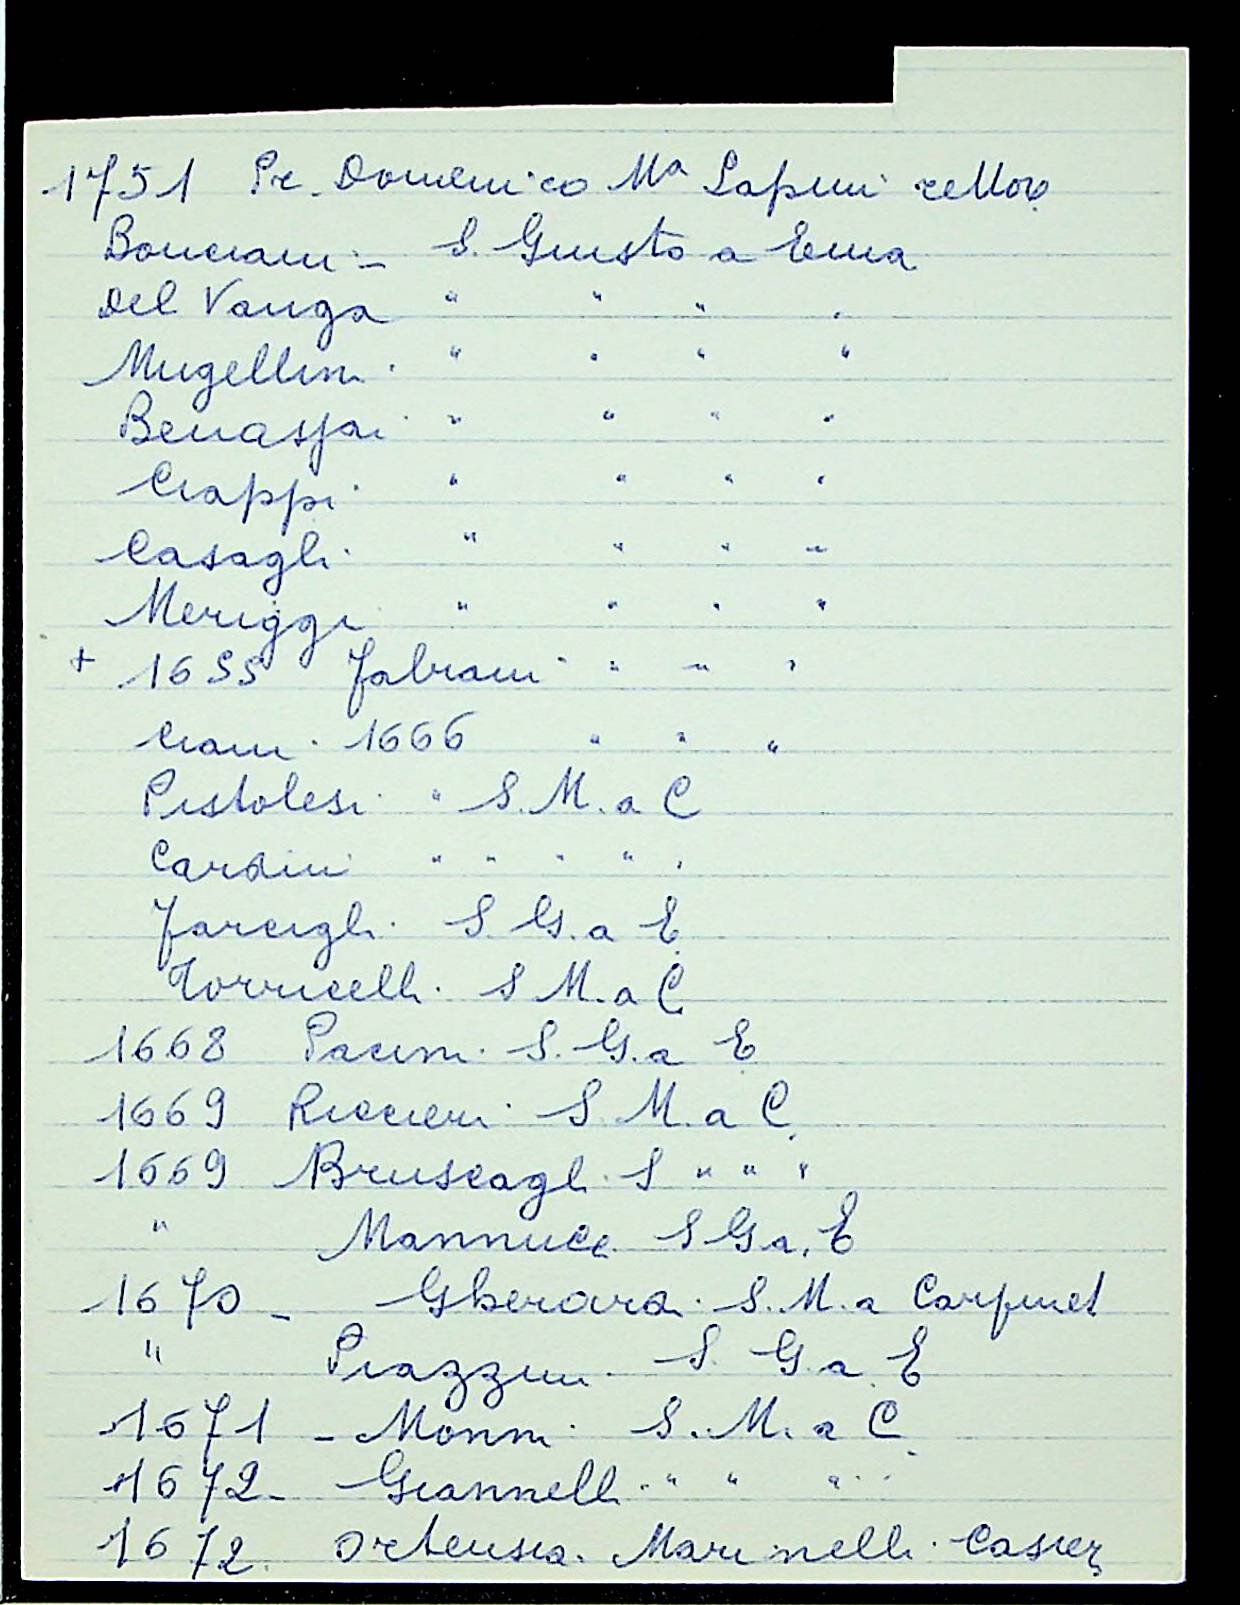 1751 Pr. Domenico Mª Lapini rettore
Bonciani - S. Giusto a Ema
Del Vanga " " " "
Mugellini " " " "
Benassai " " " "
Ciappi " " " "
Casagli " " " "
Meriggi " " " "
+ 1655 Fabiani " " " "
Ciani 1666 " " "
Pistolesi " S. M. a C
Cardini " " " " "
Farcigli S. G. a E
Torricelli S M. a C
1668 Pacini S. G. a E
1669 Riccieri S M. a C
1669 Bruscagli S " " "
" Mannucci S G a. E
1670 - Gherardi S. M. a
" Piazzini S. G. a E
1671 - Monni S. M. a C
1672 - Giannelli " " " "
1672 Ortensia Marinelli